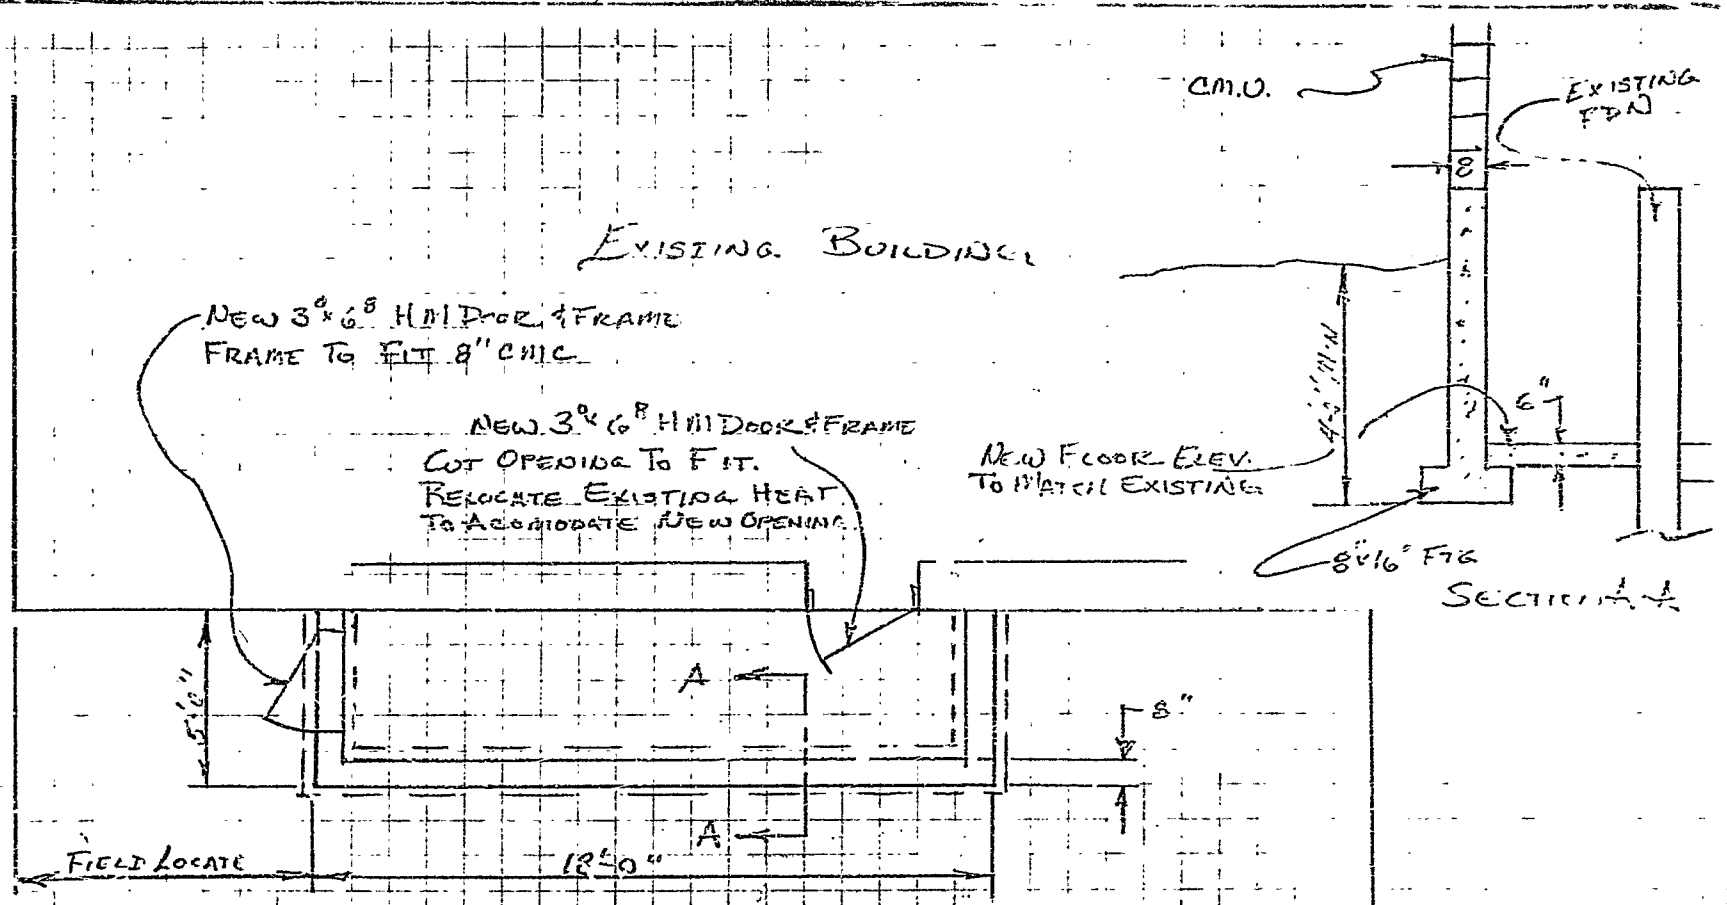 C.M.U.
EXISTING
FDN
8
EXISTING BUILDING
NEW 3⁰x6⁸ HM DOOR & FRAME
FRAME TO FIT 8" CMC
NEW 3⁰x6⁸ HM DOOR & FRAME
CUT OPENING TO FIT.
RELOCATE EXISTING HEAT
TO ACOMODATE NEW OPENING
4'-0" MIN
6"
NEW FLOOR ELEV.
TO MATCH EXISTING
8"x16" FTG
SECTION A-A
5'-0"
A
8"
A
FIELD LOCATE